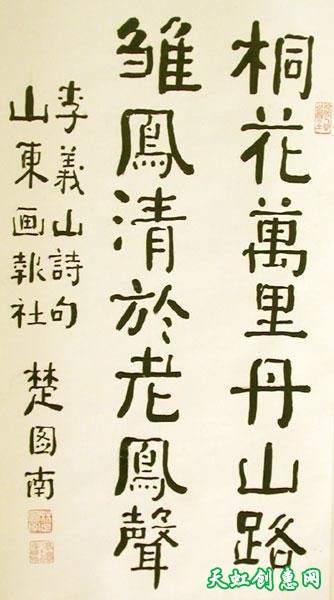 桐花萬里丹山路
雛鳳清於老鳳聲
李義山詩句
山東画報社
楚圖南
天虹创意网